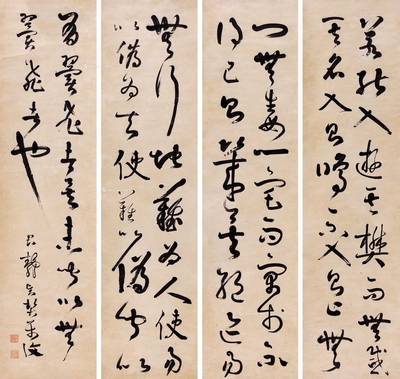 若能入遊其樊而無感
其名入則鳴不入則止無
門無毒一宅而寓於不
得已則幾矣絕迹易
無行地難為人使易
以偽為天使難以偽聞以
有翼飛者矣未聞以無
翼飛者也